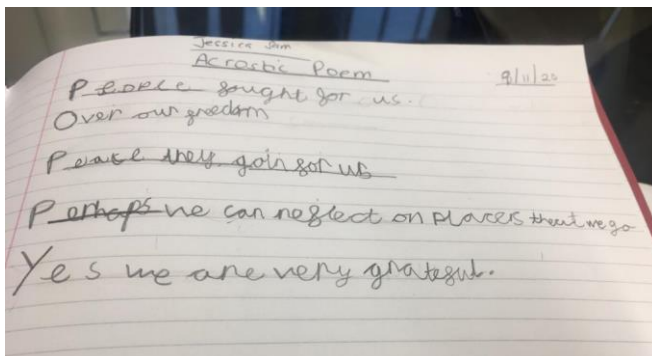 Jessica Sam
Acrostic Poem
9/11/20
People fought for us.
Over our freedom
Peace they goin for us
Perhaps we can reflect on places that we go
Yes we are very grateful.